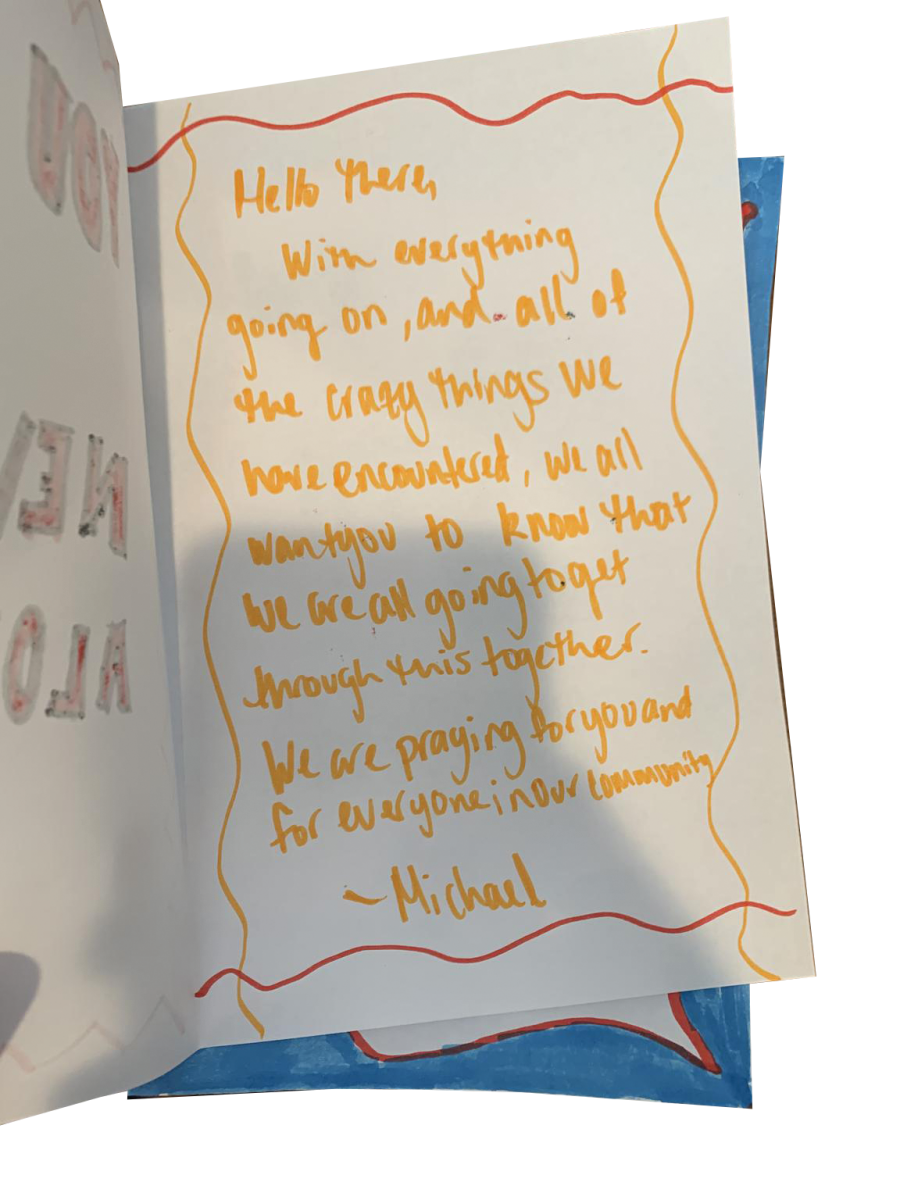 YOU
NE
ALO
Hello there,
With everything
going on, and all of
the crazy things we
have encountered, we all
want you to know that
we are all going to get
through this together.
We are praying for you and
for everyone in our community
~Michael